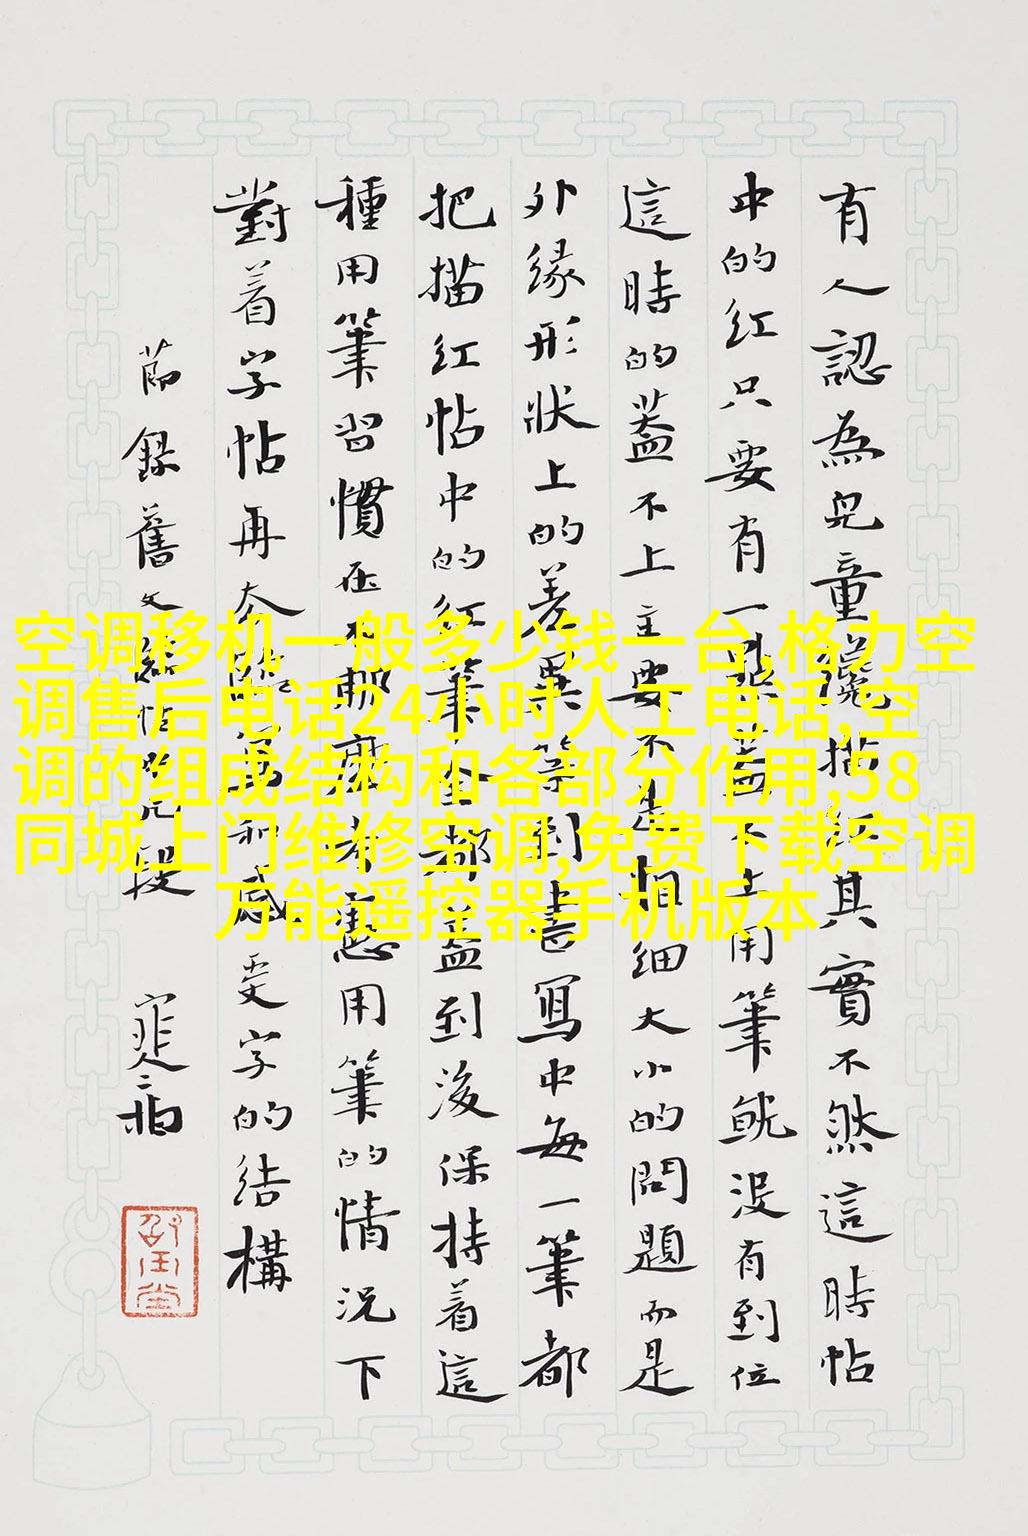 有人認為兒童纔描红其實不然這時帖
中的红只要有一點蓋不上用筆就没有到位
這時的蓋不上主要不是粗细大小的問題而是
外緣形狀上的差異等到書寫中每一筆都
把描红帖中的红筆全都蓋到後保持着這
種用筆習慣在不那麼考慮用筆的情況下
對着字帖再去臨寫和感受字的结構
節録舊文
空调移机一般多少钱一台,格力空
调售后电话24小时人工电话,空
调的组成结构和各部分作用,58
同城上门维修空调,免费下载空调
万能遥控器手机版本